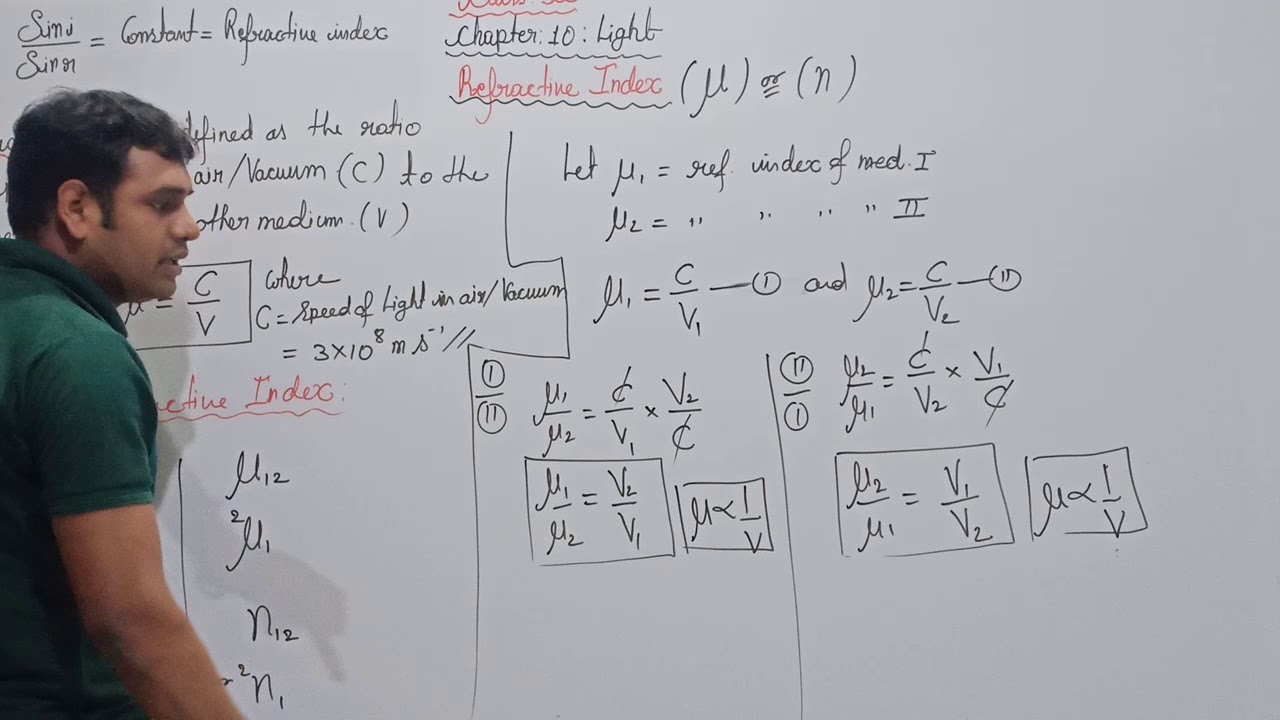 Sin i / Sin r = Constant = Refractive index
Chapter: 10 : Light
Refractive Index (μ) or (n)
defined as the ratio
air/Vacuum (C) to the
other medium. (V)
μ = C/V
where
C = Speed of Light in air/Vacuum
= 3×10⁸ m s⁻¹//
ctive Index:
μ₁₂
²μ₁
n₁₂
²n₁
Let μ₁ = ref. index of med. I
μ₂ = " " " " II
μ₁ = C/V₁ — (I) and μ₂ = C/V₂ — (II)
(I)/(II) μ₁/μ₂ = C/V₁ × V₂/C
μ₁/μ₂ = V₂/V₁ μ ∝ 1/V
(II)/(I) μ₂/μ₁ = C/V₂ × V₁/C
μ₂/μ₁ = V₁/V₂ μ ∝ 1/V